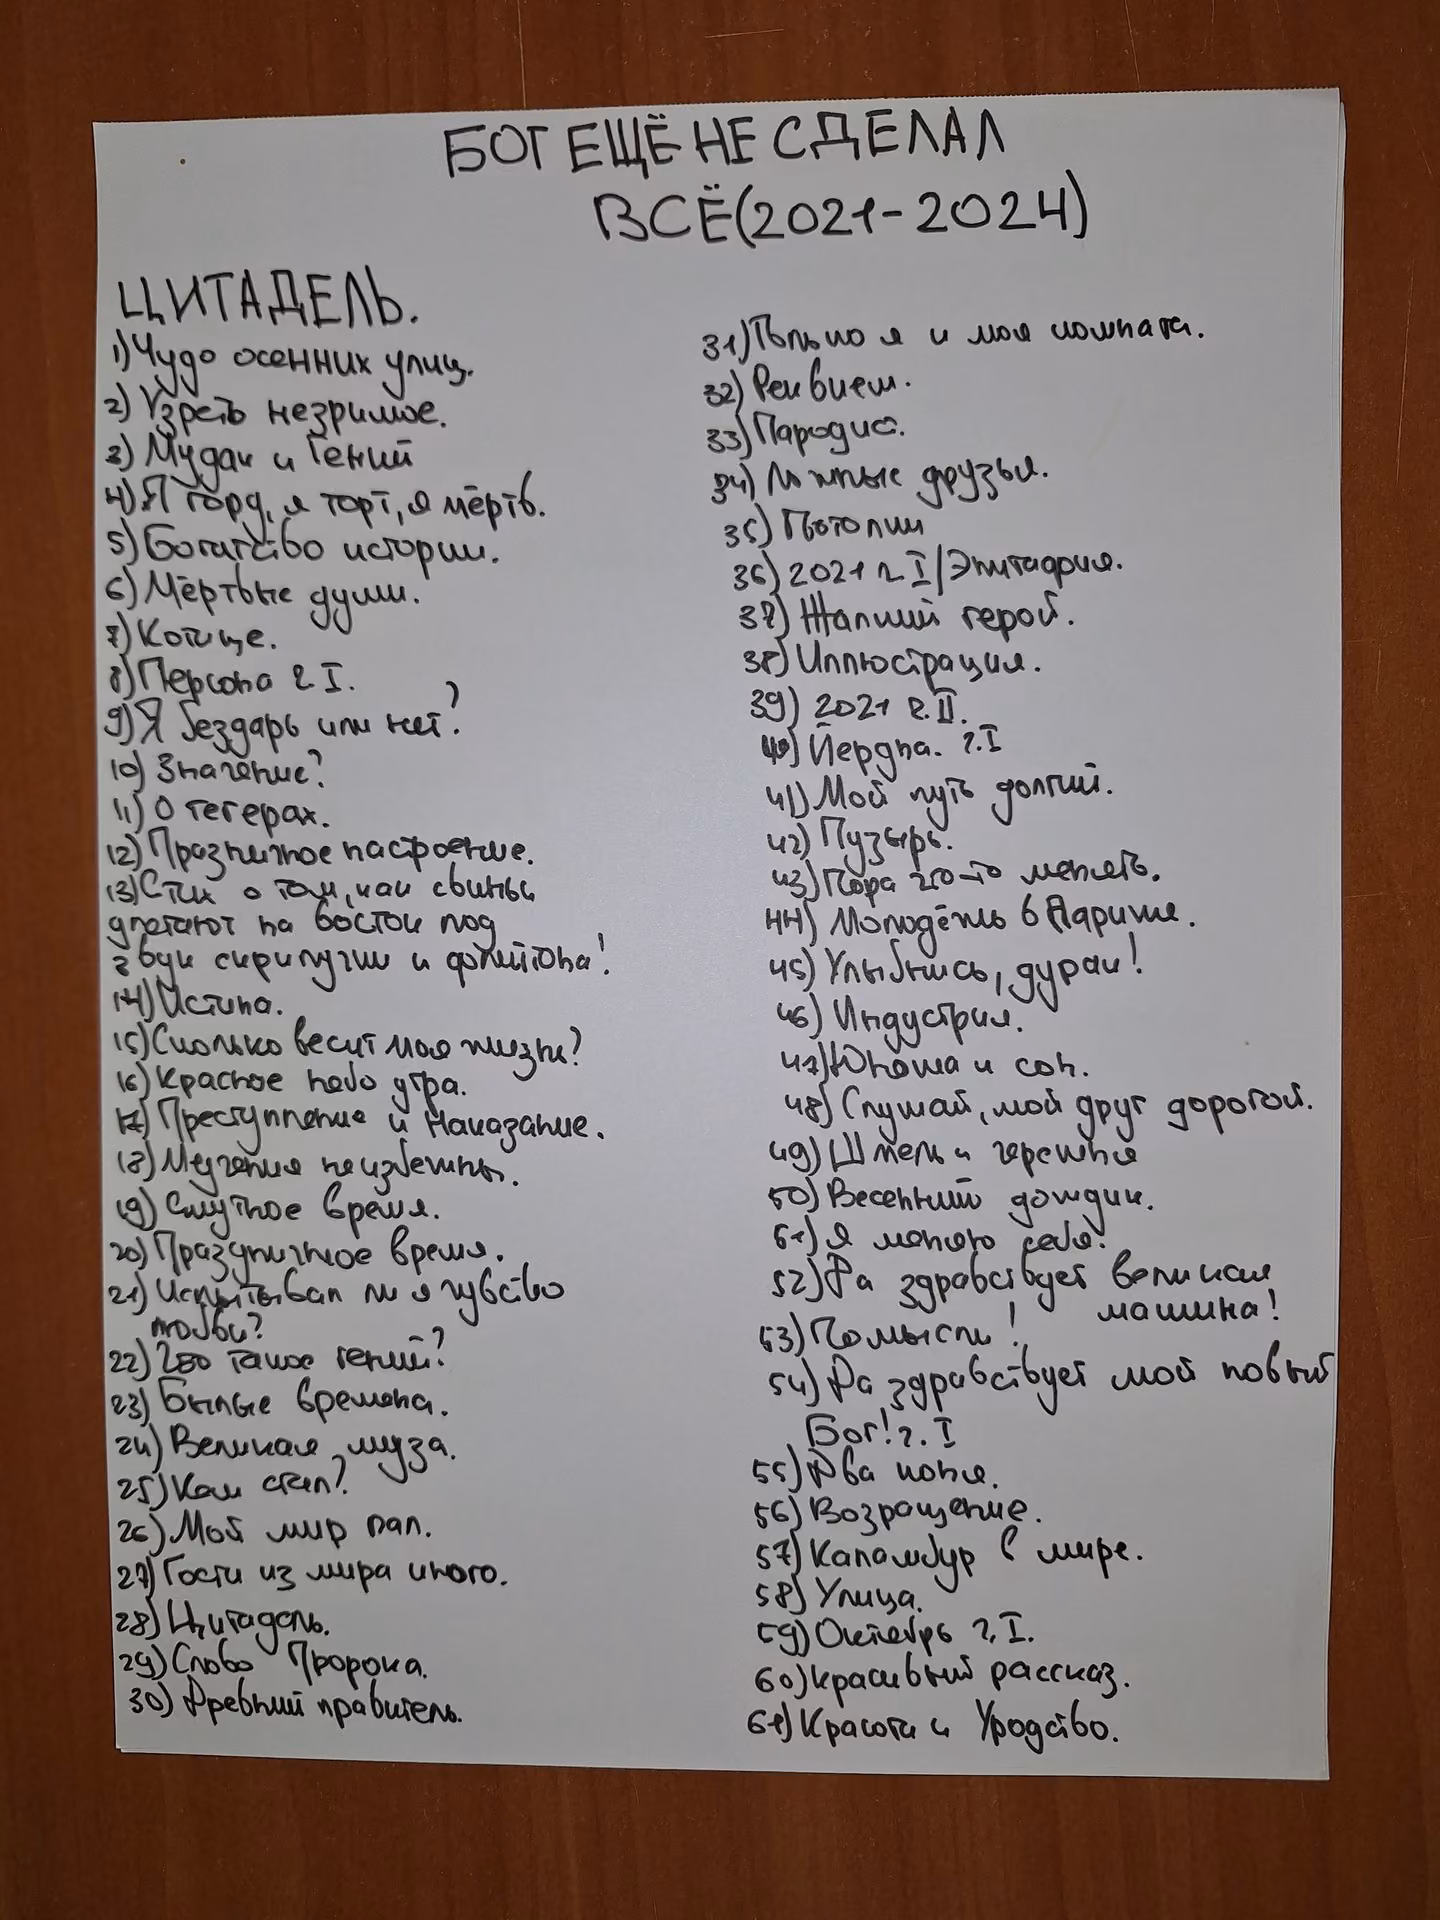 БОГ ЕЩЁ НЕ СДЕЛАЛ
ВСЁ(2021-2024)
ЦИТАДЕЛЬ.
1) Чудо осенних улиц.
2) Узреть незримое.
3) Мудак и Гений
4) Я горд, я торт, я мёртв.
5) Богатство истории.
6) Мёртвые души.
7) Котище.
8) Персона ч I.
9) Я бездарь или нет?
10) Значение?
11) О тегерах.
12) Празничное настроение.
13) Стих о том, как свиньи
улетают на восток под
звуки скрипучки и фолитона!
14) Истина.
15) Сколько весит моя жизнь?
16) Красное небо утра.
17) Преступление и Наказание.
18) Мучения неизбежны.
19) Смутное время.
20) Праздничное время.
21) Испытывал ли я чувство
любви?
22) Что такое гений?
23) Былые времена.
24) Великая муза.
25) Кем стал?
26) Мой мир пал.
27) Гости из мира иного.
28) Цитадель.
29) Слово Пророка.
30) Древний правитель.
31) Только я и моя комната.
32) Реквием.
33) Пародис.
34) Ложные друзья.
35) Потолки
36) 2021 ч I/Эпитафия.
37) Жалкий герой.
38) Иллюстрация.
39) 2021 ч. II.
40) Йердна. ч. I
41) Мой путь долгий.
42) Пузырь.
43) Пора что-то менять.
44) Молодёжь в Париже.
45) Улыбнись, дурак!
46) Индустрия.
47) Юноша и сон.
48) Слушай, мой друг дорогой.
49) Шмель и черешня
50) Весенний дождик.
51) Я меняю себя.
52) Да здравствует великая
машина!
53) Помысли!
54) Да здравствует мой новый
Бог! ч. I
55) Два коня.
56) Возращение.
57) Каламбур в мире.
58) Улица.
59) Октябрь ч. I.
60) Красивый рассказ.
61) Красота и Уродство.